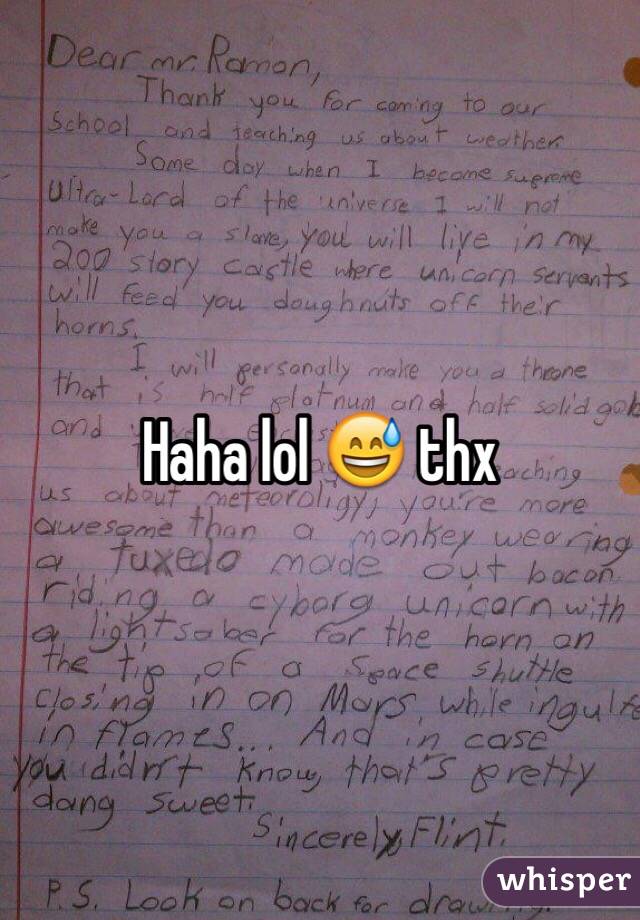 Dear mr. Ramon,
Thank you for coming to our
school and teaching us about weather.
Some day when I become supreme
Ultra-Lord of the universe I will not
make you a slave, you will live in my
200 story castle where unicorn servants
will feed you doughnuts off their
horns.
I will personally make you a throne
that is half platnum and half solid gold
and
Haha lol 😅 thx
teaching
us about meteoroligy, you're more
awesome than a monkey wearing
a tuxedo made out bacon
riding a cyborg unicorn with
a lightsaber for the horn on
the tip of a space shuttle
closing in on Mars while ingulfed
in flames... And in case
you didn't know, that's pretty
dang sweet.
Sincerely, Flint.
P.S. Look on back for drawing.
whisper